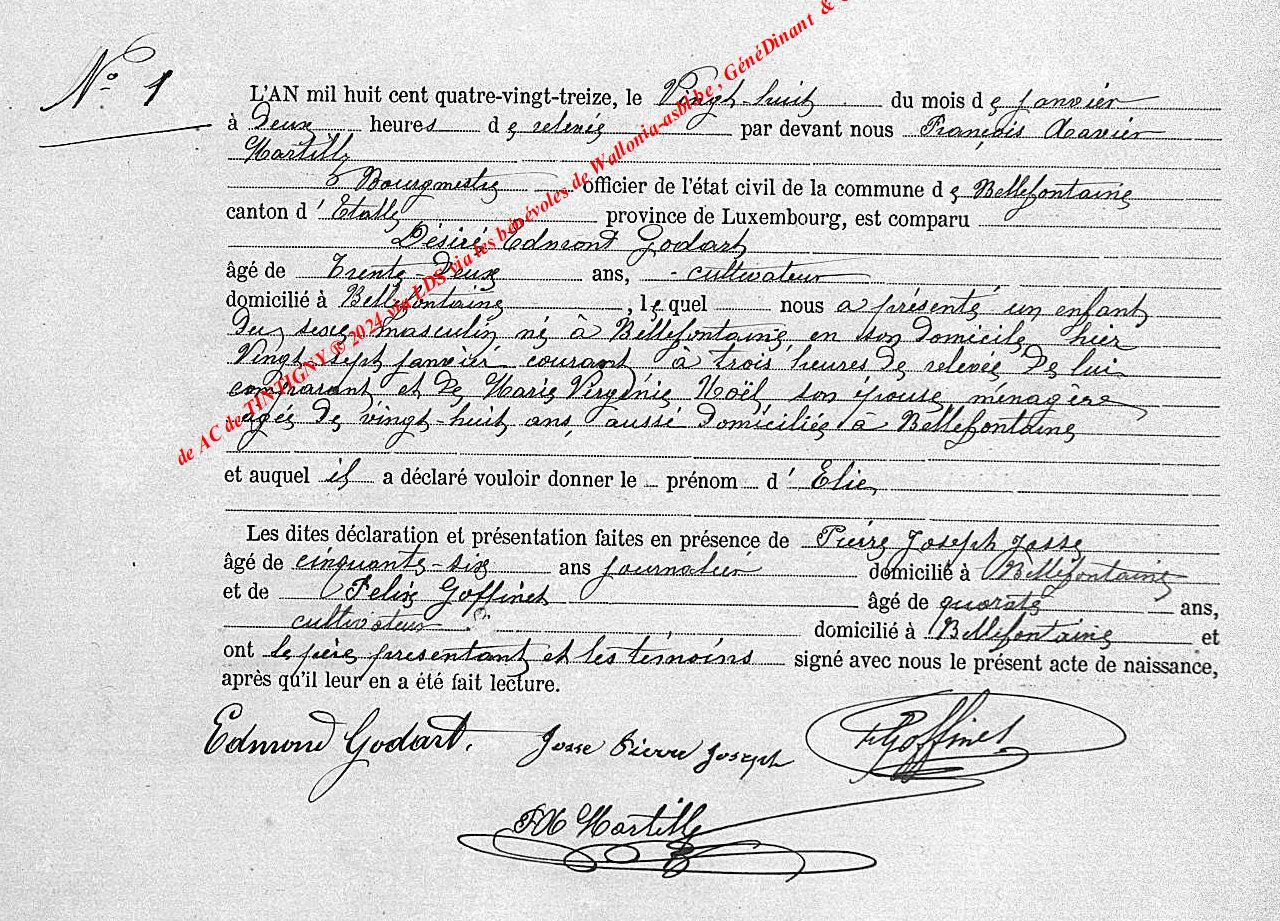 N° 1
L'AN mil huit cent quatre-vingt-treize, le Vingt-huit du mois de janvier
à Deux heures de relevée par devant nous François Xavier
Martilly
Bourgmestre officier de l'état civil de la commune de Bellefontaine
canton d'Etalle province de Luxembourg, est comparu
Désiré Edmont Godart
âgé de Trente-Deux ans, cultivateur
domicilié à Bellefontaine, lequel nous a présenté un enfant
du sexe masculin né à Bellefontaine en son domicile hier
Vingt-sept janvier courant à trois heures de relevée, de lui
comparant et de Marie Virgénie Noël son épouse ménagère
agée de vingt-huit ans, aussi domiciliée à Bellefontaine
et auquel il a déclaré vouloir donner le prénom d'Elie,
Les dites déclaration et présentation faites en présence de Pierre Joseph Josse
âgé de cinquante-six ans journalier domicilié à Bellefontaine
et de Felix Goffinet âgé de quarate ans,
cultivateur domicilié à Bellefontaine et
ont le père présentant et les témoins signé avec nous le présent acte de naissance,
après qu'il leur en a été fait lecture.
Edmond Godart.
Josse Pierre Joseph
F Goffinet
FX Martilly
de AC de TINTIGNY © 2024 via LDS via les bénévoles de Wallonia-asbl.be, GénéDinant &